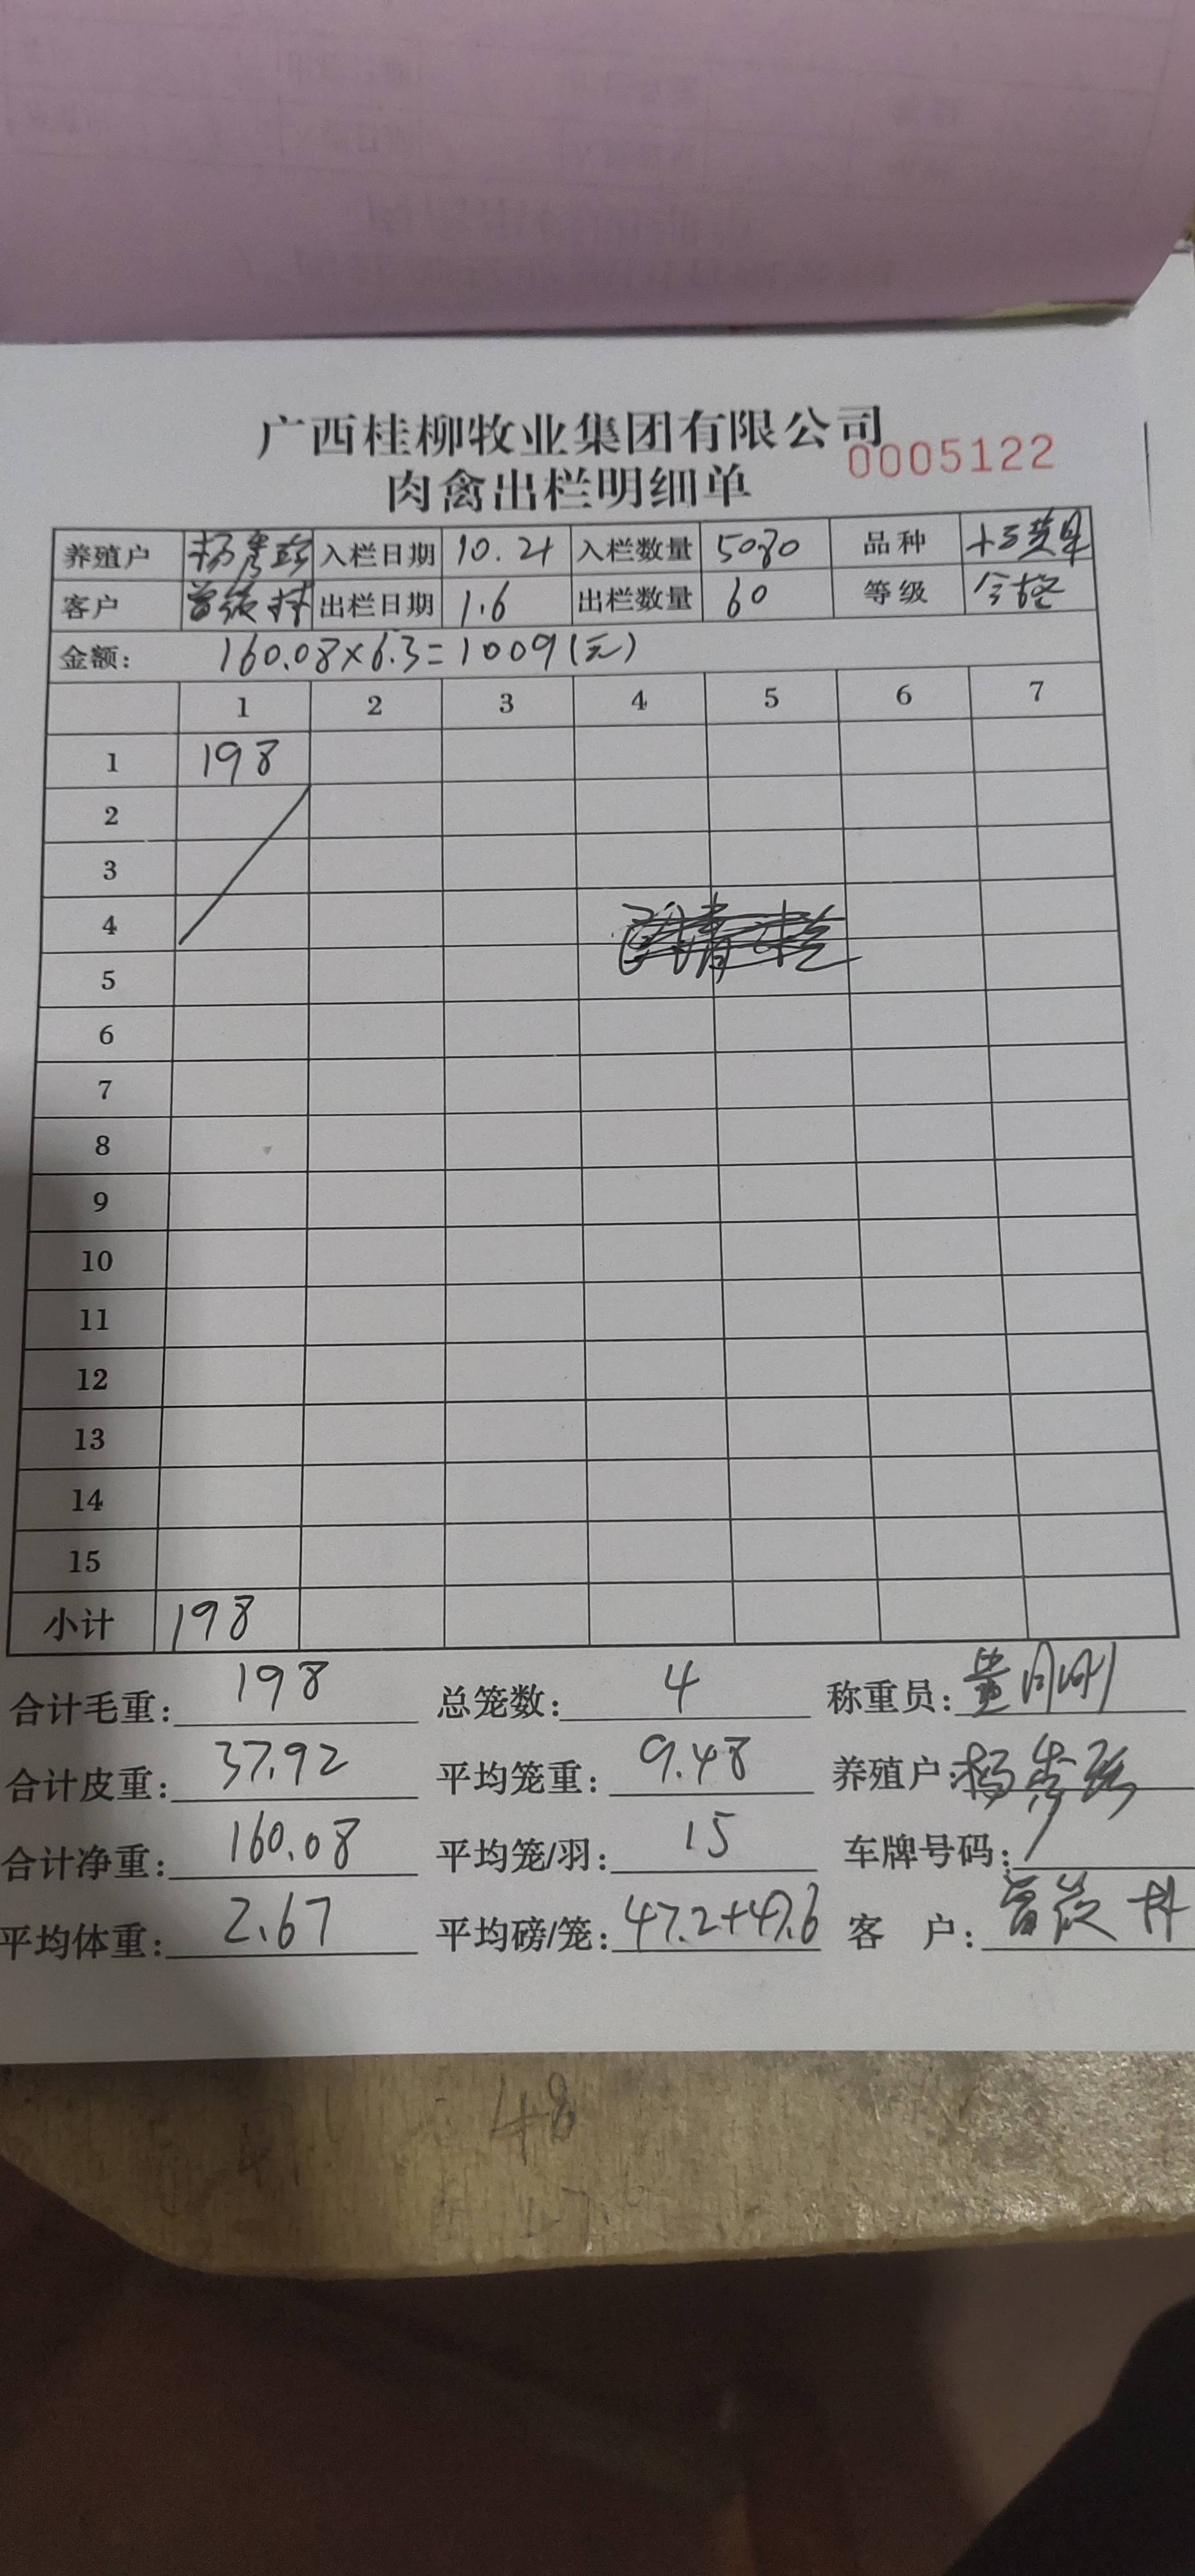 广西桂柳牧业集团有限公司
0005122
肉禽出栏明细单
养殖户 杨 入栏日期 10.21 入栏数量 5080 品种
客户 曾 出栏日期 1.6 出栏数量 60 等级 合格
金额: 160.08×6.3=1009(元)
1 2 3 4 5 6 7
1 198
2
3
4
5
6
7
8
9
10
11
12
13
14
15
小计 198
合计毛重: 198 总笼数: 4 称重员: 黄
合计皮重: 37.92 平均笼重: 9.48 养殖户: 杨
合计净重: 160.08 平均笼/羽: 15 车牌号码: /
平均体重: 2.67 平均磅/笼: 47.2+47.6 客 户: 曾
48